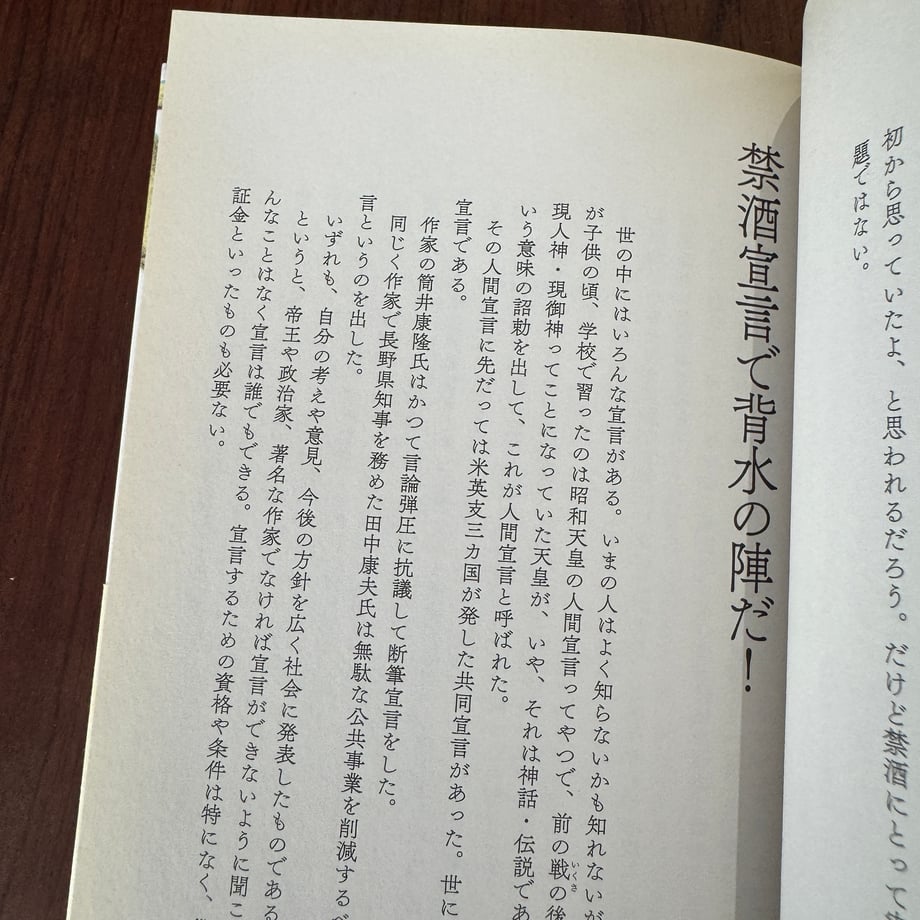 初から思っていたよ、と思われるだろう。だけど禁酒にとって
題ではない。
禁酒宣言で背水の陣だ！
世の中にはいろんな宣言がある。いまの人はよく知らないかも知れないが
が子供の頃、学校で習ったのは昭和天皇の人間宣言ってやつで、前の戦いくさの後
現人神・現御神ってことになっていた天皇が、いや、それは神話・伝説であ
いう意味の詔勅を出して、これが人間宣言と呼ばれた。
その人間宣言に先だっては米英支三カ国が発した共同宣言があった。世に
宣言である。
作家の筒井康隆氏はかつて言論弾圧に抗議して断筆宣言をした。
同じく作家で長野県知事を務めた田中康夫氏は無駄な公共事業を削減するべ
言というのを出した。
いずれも、自分の考えや意見、今後の方針を広く社会に発表したものである
というと、帝王や政治家、著名な作家でなければ宣言ができないように聞こ
んなことはなく宣言は誰でもできる。宣言するための資格や条件は特になく、
証金といったものも必要ない。